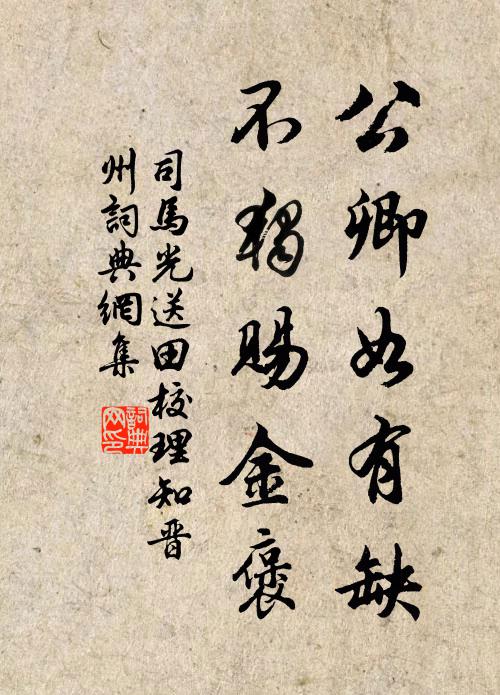 公卿如有缺
不獨賜金褒
司馬光送田校理知晋
州詞典網集
詞典
网印